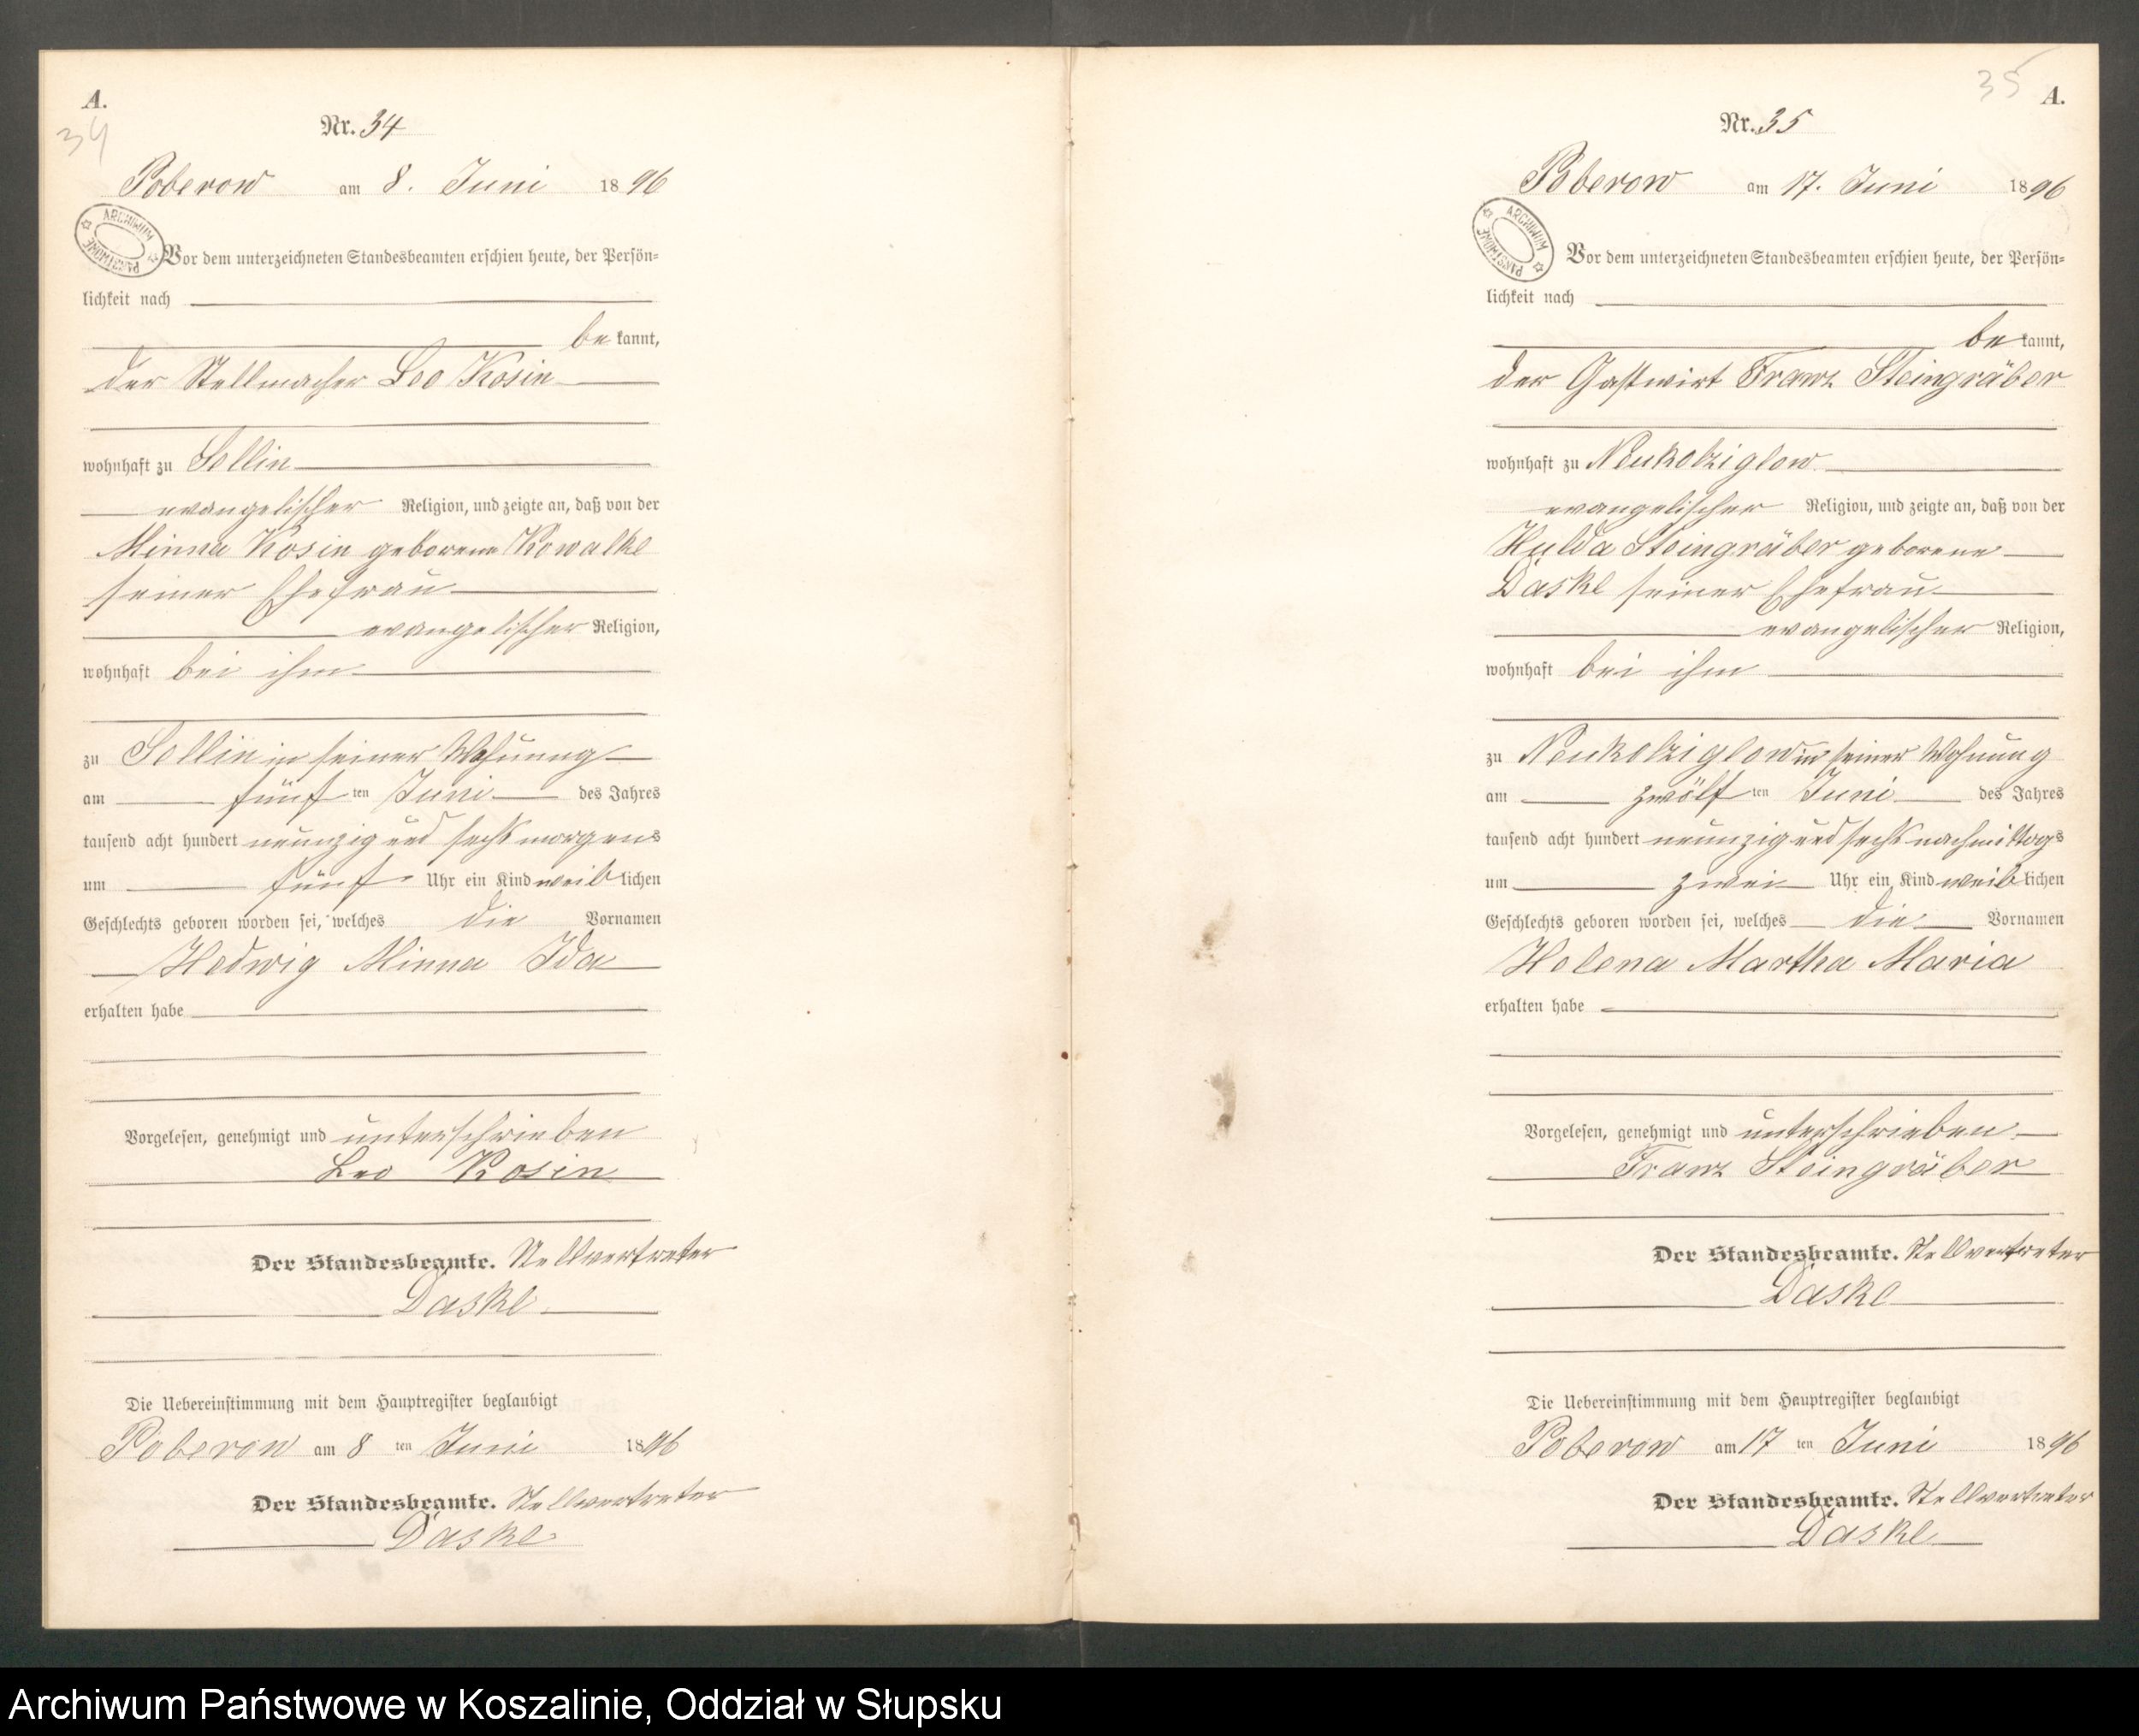 A.
34
Nr. 34
Poberow am 8. Juni 1896
ARCHIWUM PAŃSTWOWE
Vor dem unterzeichneten Standesbeamten erschien heute, der Persön=
lichkeit nach
be kannt,
der Stellmacher Leo Kosin
wohnhaft zu Sellin
evangelischer Religion, und zeigte an, daß von der
Minna Kosin geborene Kowalke
seiner Ehefrau
evangelischer Religion,
wohnhaft bei ihm
zu Sellin in seiner Wohnung
am fünf ten Juni des Jahres
tausend acht hundert neunzig und sechs morgens
um fünf Uhr ein Kind weib lichen
Geschlechts geboren worden sei, welches die Vornamen
Hedwig Minna Ida
erhalten habe
Vorgelesen, genehmigt und unterschrieben
Leo Kosin
Der Standesbeamte. Stellvertreter
Daske
Die Uebereinstimmung mit dem Hauptregister beglaubigt
Poberow am 8 ten Juni 1896
Der Standesbeamte. Stellvertreter
Daske
35
A.
Nr. 35
Poberow am 17. Juni 1896
ARCHIWUM PAŃSTWOWE
Vor dem unterzeichneten Standesbeamten erschien heute, der Persön=
lichkeit nach
be kannt,
der Gastwirt Franz Steingräber
wohnhaft zu Neukolziglow
evangelischer Religion, und zeigte an, daß von der
Hulda Steingräber geborene
Daske seiner Ehefrau
evangelischer Religion,
wohnhaft bei ihm
zu Neukolziglow in seiner Wohnung
am zwölf ten Juni des Jahres
tausend acht hundert neunzig und sechs nachmittags
um zwei Uhr ein Kind weib lichen
Geschlechts geboren worden sei, welches die Vornamen
Helena Martha Maria
erhalten habe
Vorgelesen, genehmigt und unterschrieben
Franz Steingräber
Der Standesbeamte. Stellvertreter
Daske
Die Uebereinstimmung mit dem Hauptregister beglaubigt
Poberow am 17 ten Juni 1896
Der Standesbeamte. Stellvertreter
Daske
Archiwum Państwowe w Koszalinie, Oddział w Słupsku